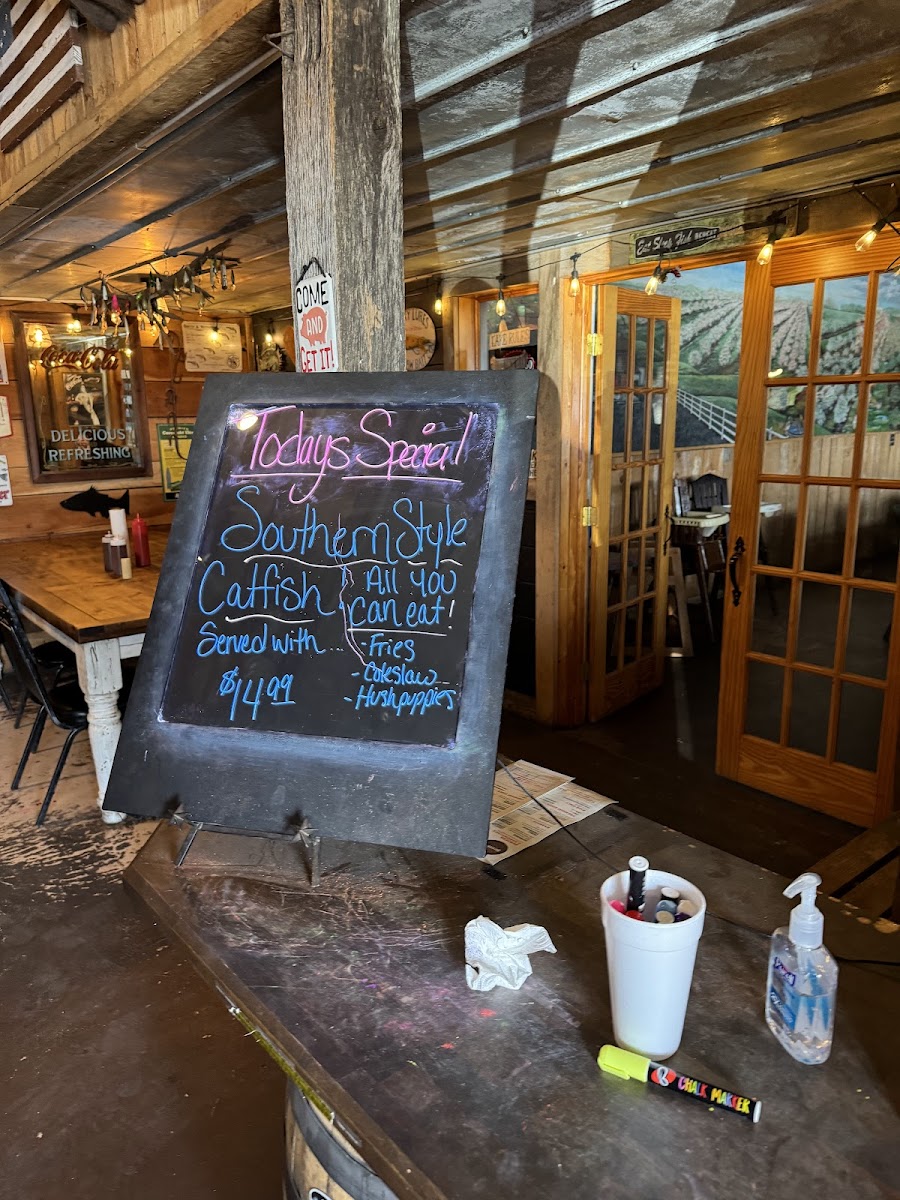 COME
AND
GET IT!
Eat Slop Fish
Coca-Cola
DELICIOUS
REFRESHING
Todays Special
Southern Style
Catfish
All you
can eat!
Served with...
- Fries
- Coleslaw
- Hushpuppies
$14.99
CHALK MARKER